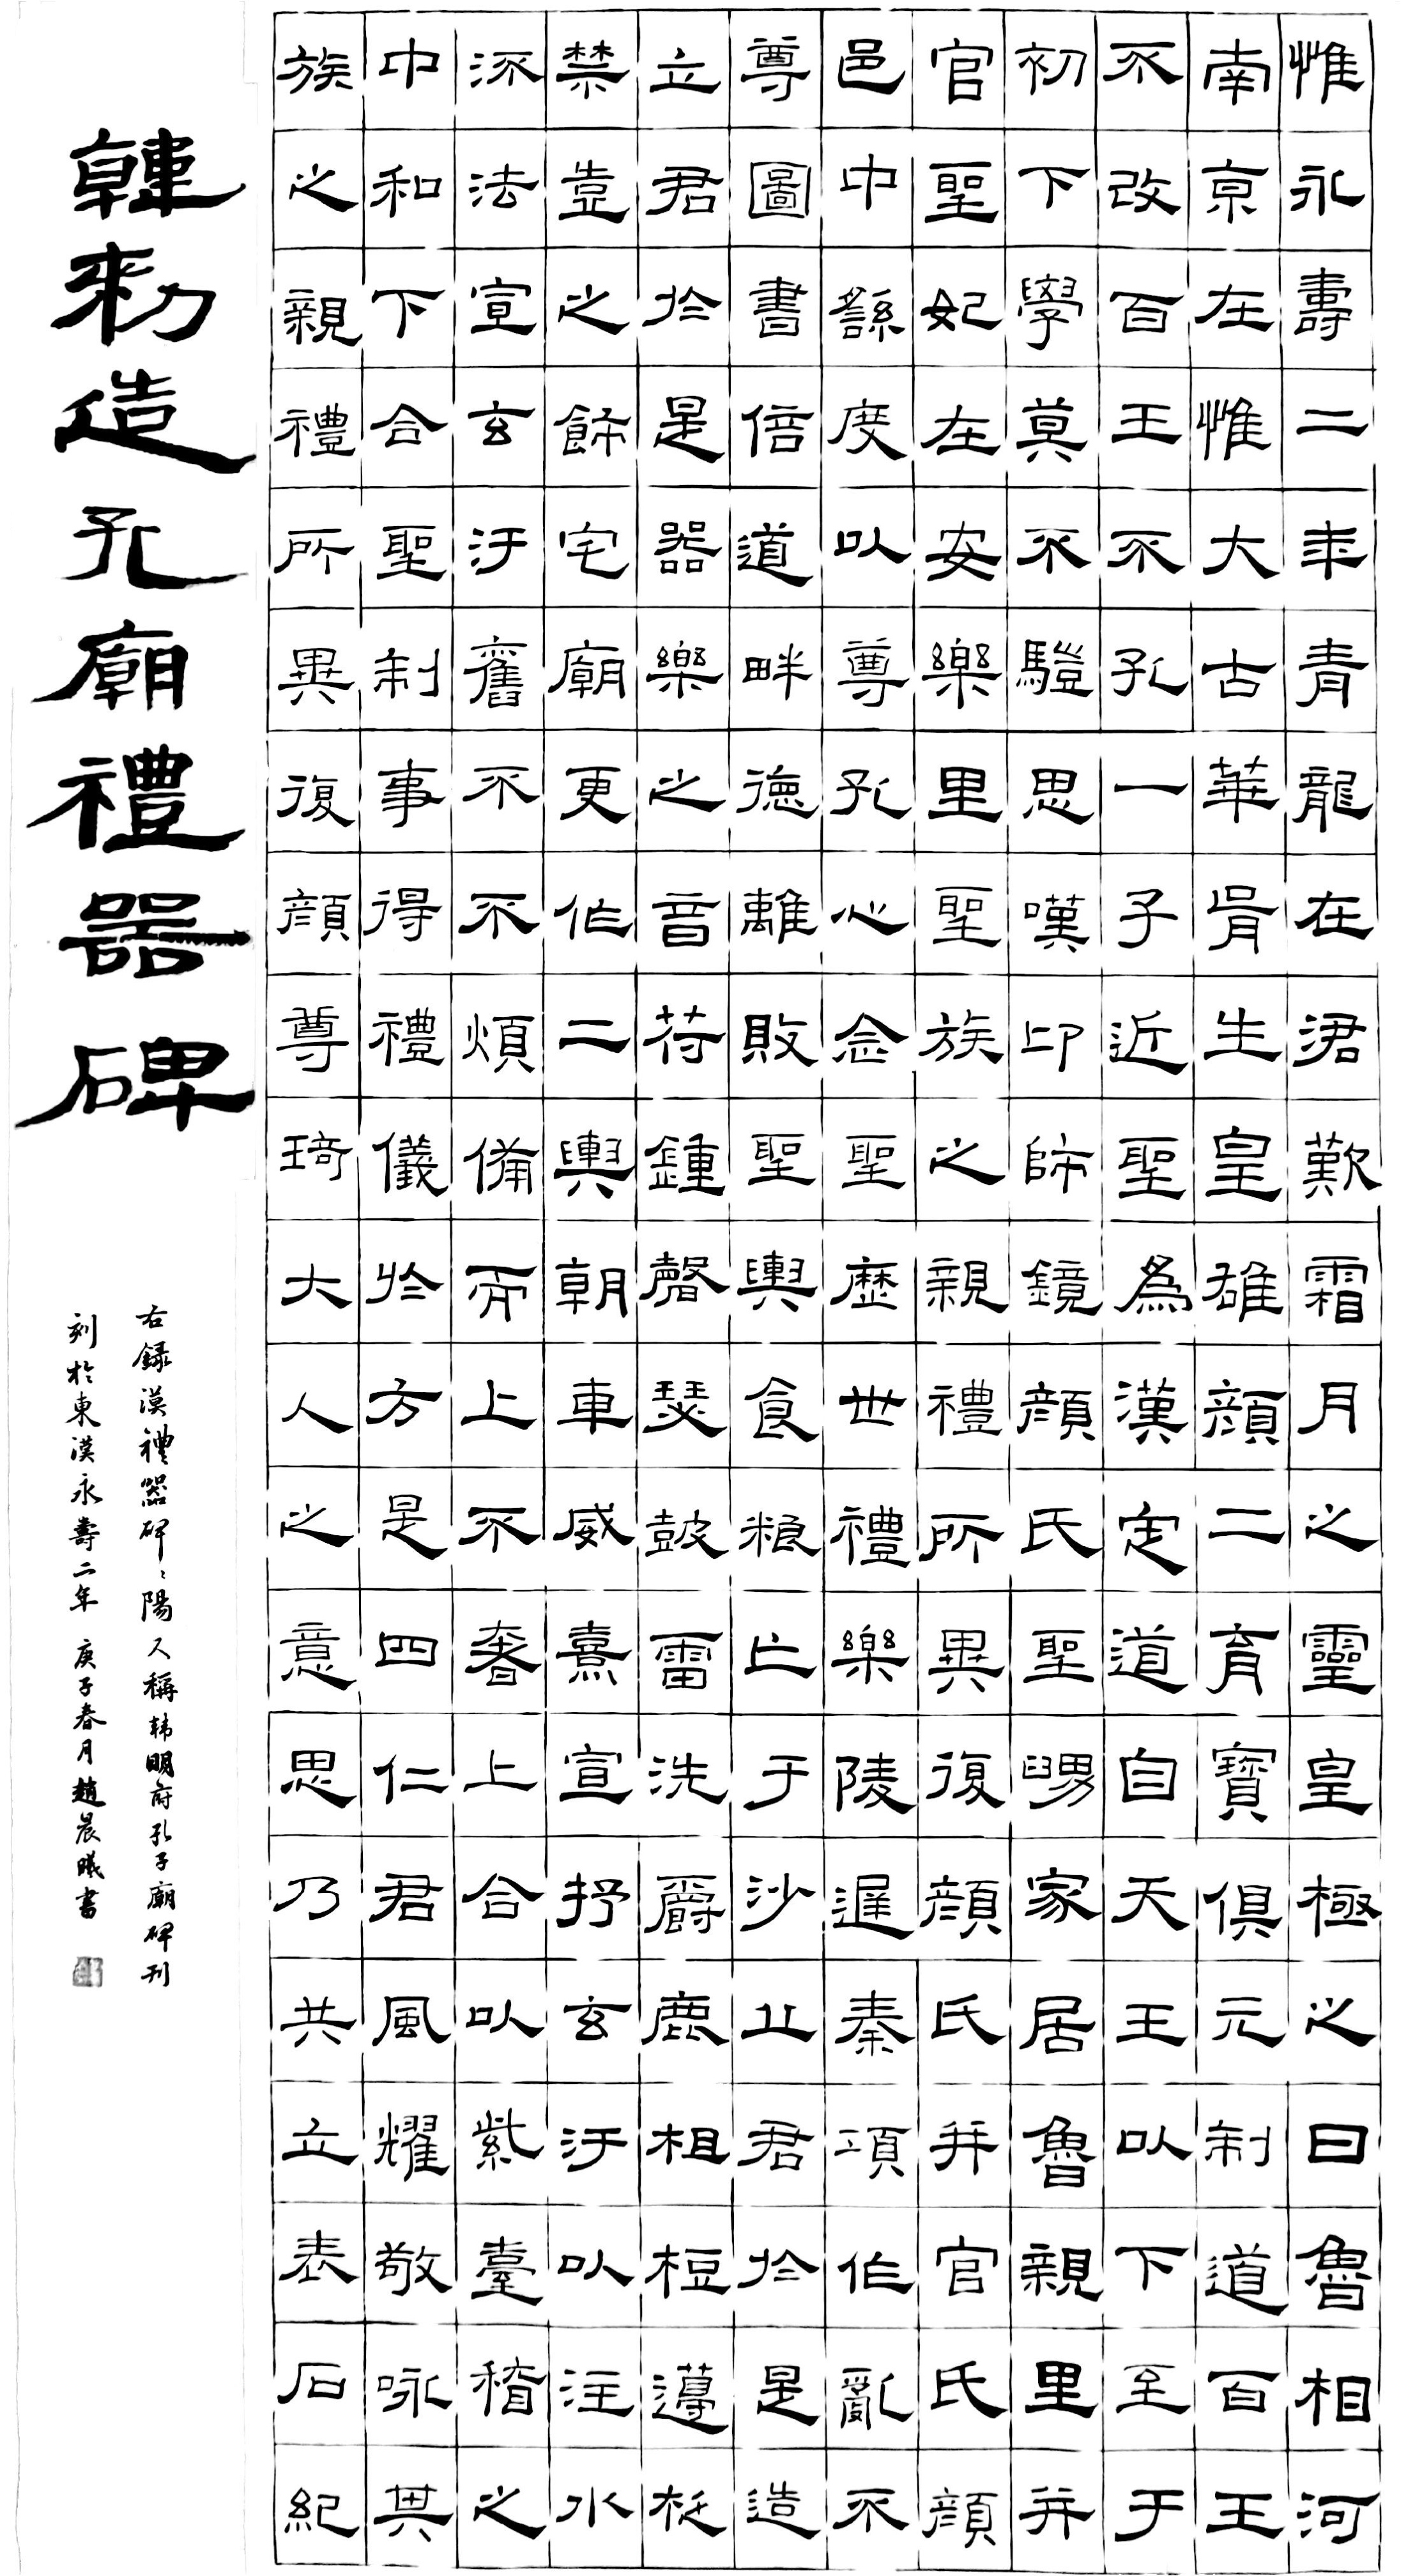 惟永壽二年青龍在涒歎霜月之靈皇極之日魯相河
南京在惟大古華胥生皇雄顏二育寶俱元制道百王
不改百王不孔一子近聖為漢定道自天王以下至于
初下學莫不驥思嘆卬師鏡顏氏聖舅家居魯親里并
官聖妃在安樂里聖族之親禮所異復顏氏并官氏顏
邑中繇度以尊孔心念聖歷世禮樂陵遲秦項作亂不
尊圖書倍道畔德離敗聖輿食粮亡于沙丘君於是造
立君於是器樂之音符鍾磬瑟鼓雷洗爵鹿柤梪籩柉
禁壹之飾宅廟更作二輿朝車威熹宣抒玄汙以注水
涿法宣玄汙舊不不煩備而上不奢上合以紫臺稽之
中和下合聖制事得禮儀於方是四仁君風耀敬咏其
族之親禮所異復顏尊琦大人之意思乃共立表石紀
韓勑造孔廟禮器碑
右錄漢禮器碑碑陽又稱韩明府孔子廟碑刊
刻於東漢永壽二年庚子春月趙晨曦書